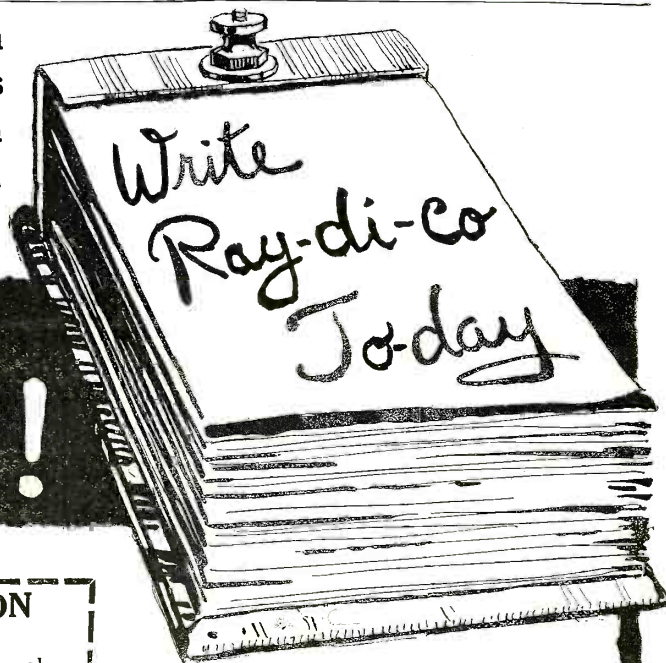 Write
Ray-di-co
To-day
!
ON